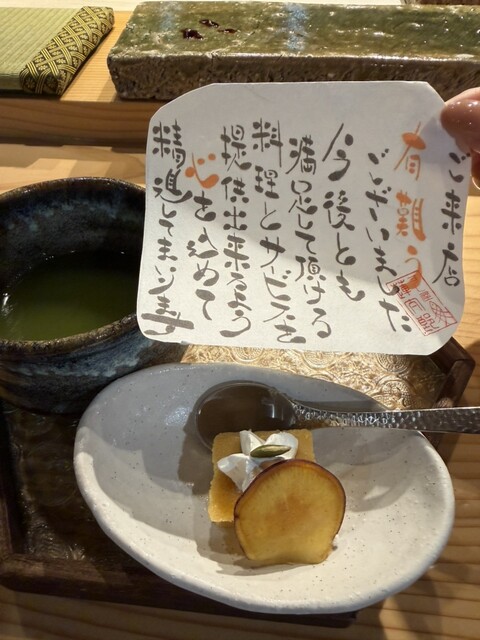 ご来店
有難う
ございました
今後とも
満足して頂ける
料理とサービスを
提供出来るよう
心を込めて
精進してまいります